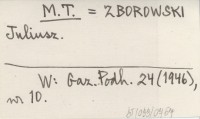 M.T. = ZBOROWSKI
Juliusz.
W: Gaz. Podh. 24 (1946),
nr 10.